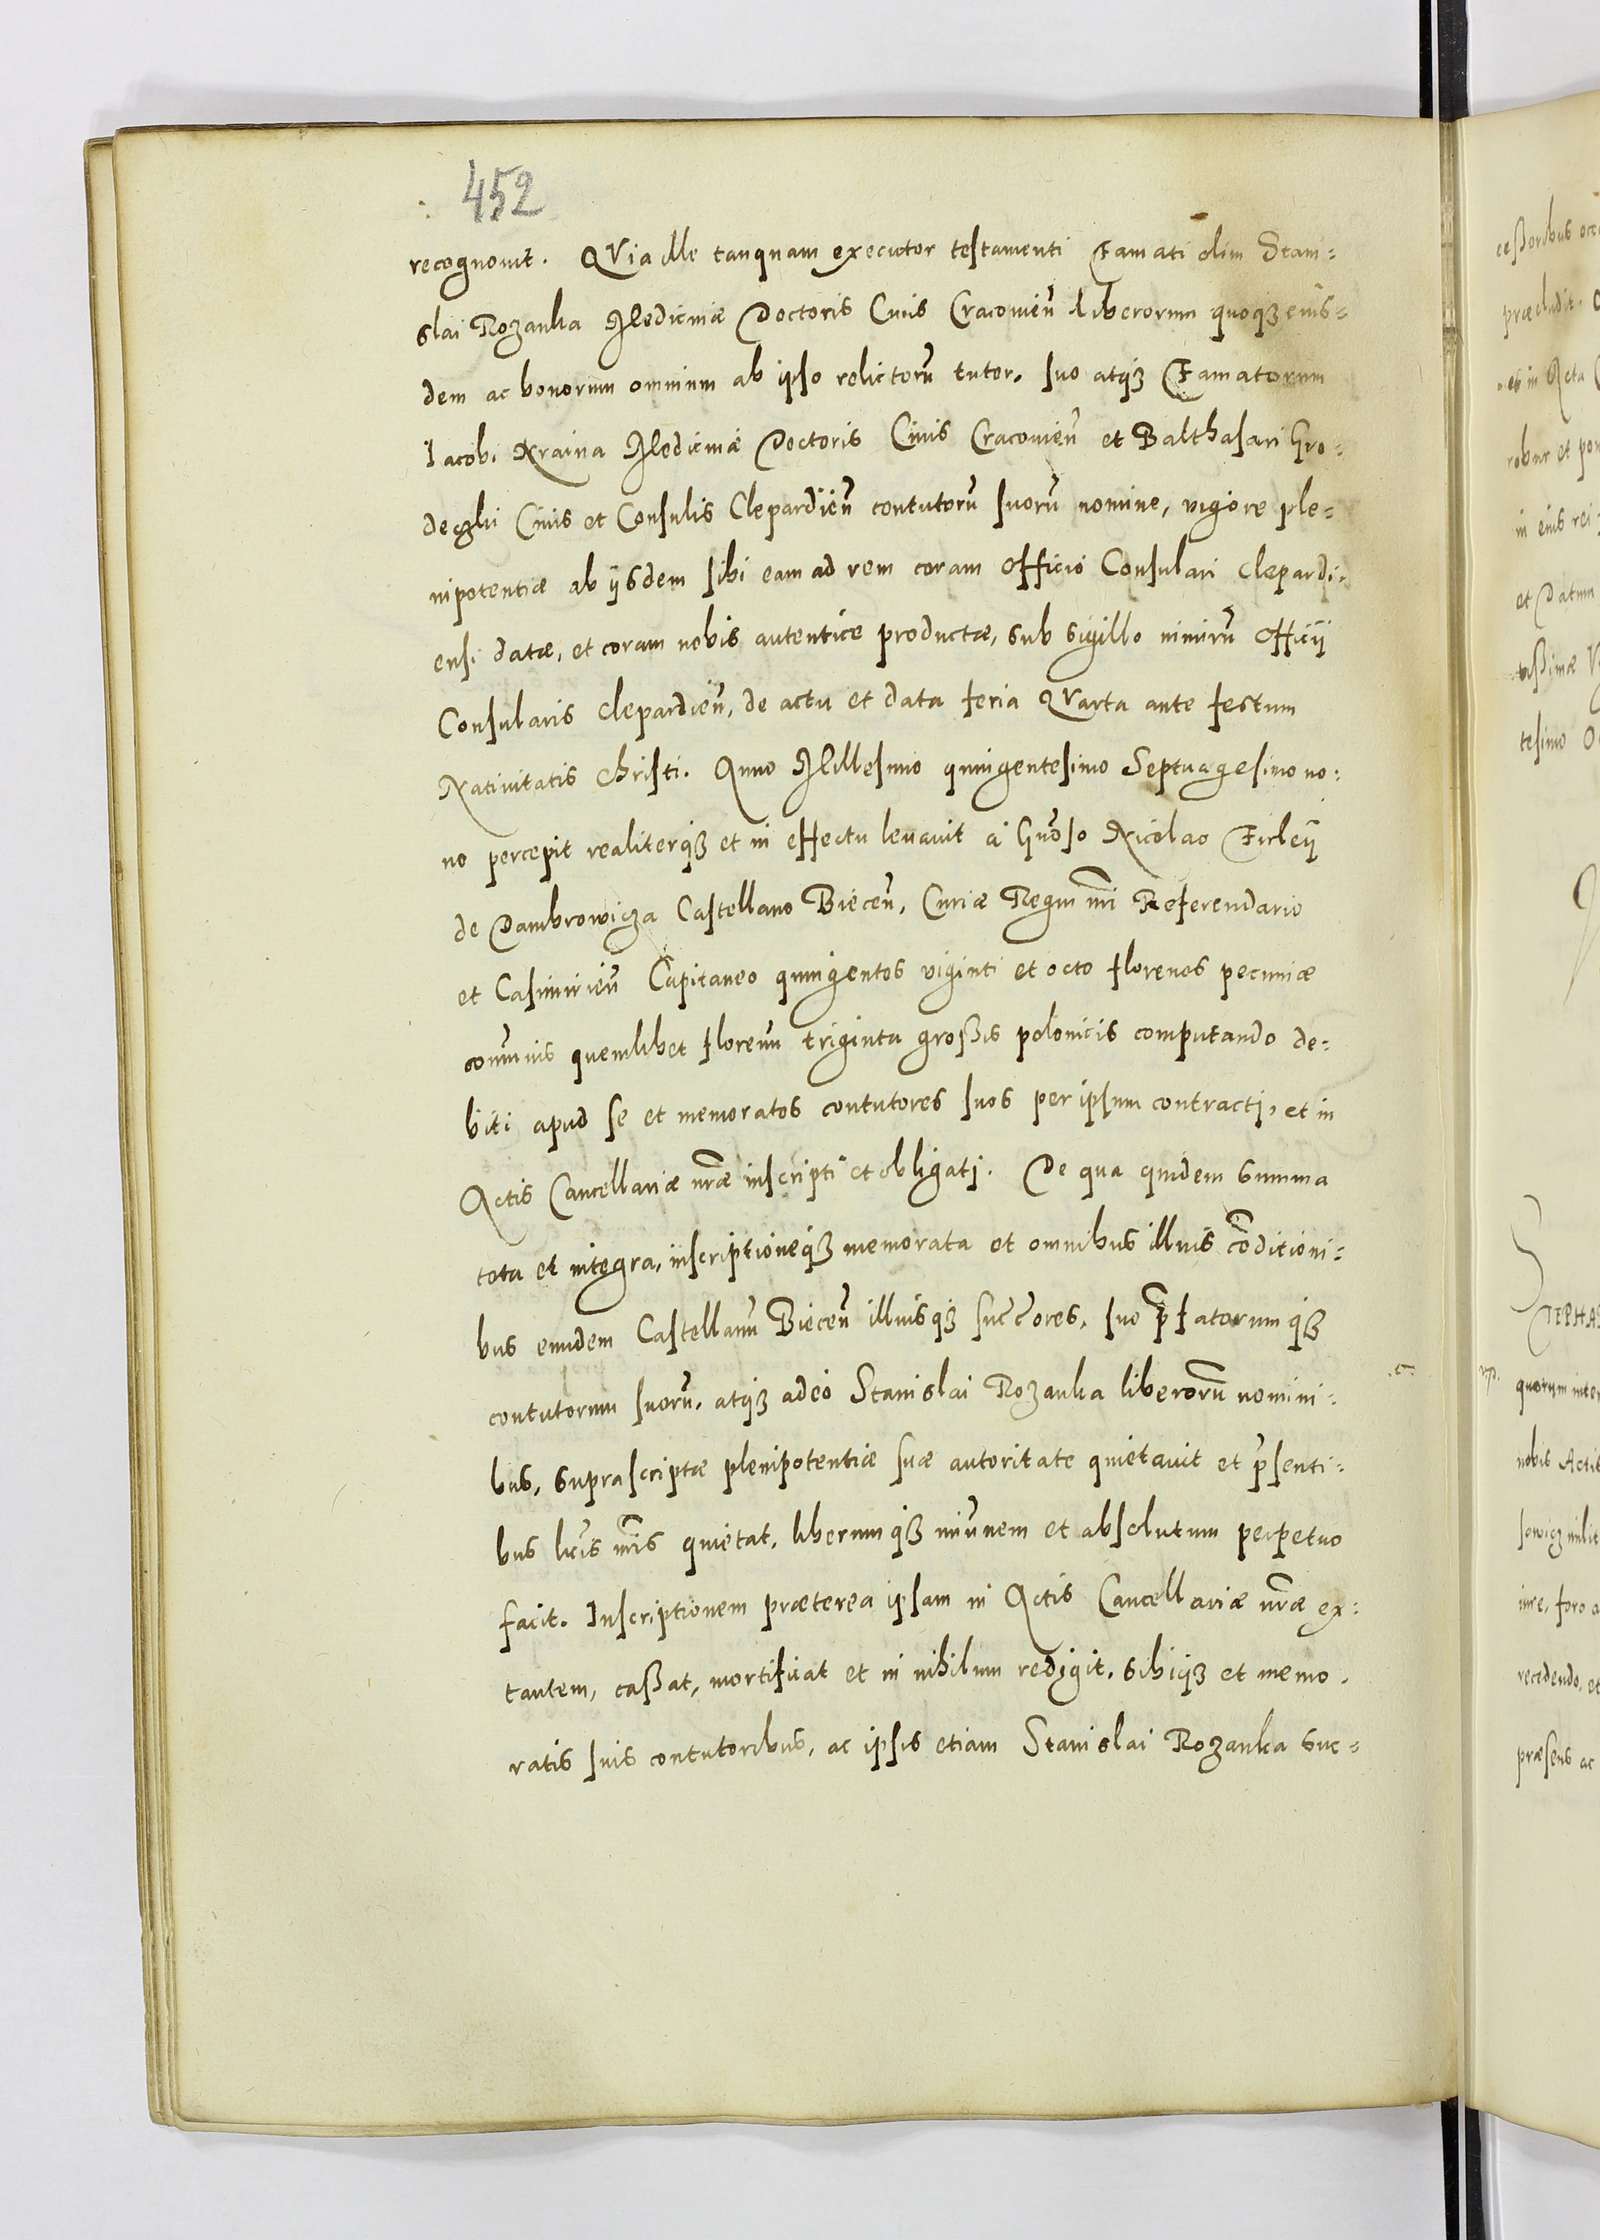 452
recognouit. QVia ille tanquam executor testamenti Famati olim Stani=
slai Rozanka Medicinæ Doctoris Ciuis Cracouieñ liberorum quoqȝ eius=
dem ac bonorum omnium ab ipso relictorũ tutor, suo atqȝ Famatorum
Iacobi Kraina Medicinæ Doctoris Ciuis Cracouieñ et Balthasari Gro=
deczki Ciuis et Consulis Clepardieñ contutorũ suorũ nomine, vigore ple=
nipotentiæ ab ijsdem sibi eam ad rem coram officio Consulari Clepardi=
ensi datæ, et coram nobis autentice productæ, sub sigillo nimirũ officij
Consularis Clepardieñ, de actu et data feria Qvarta ante festum
Natiuitatis Christi. Anno Millesimo quingentesimo Septuagesimo no=
no percepit realiterqȝ et in effectu leuauit à Gñoso Nicolao Firleÿ
de Dambrowicza Castellano Bieceñ, Curiæ Regni nr̃i Referendario
et Casimirieñ Capitaneo quingentos viginti et octo florenos pecuniæ
com̃unis quemlibet florenũ triginta grossis polonicis computando de=
biti apud se et memoratos contutores suos per ipsum contracti, et in
Actis Cancellariæ nr̃æ inscripti et obligati. De qua quidem summa
tota et integra, inscriptioneqȝ memorata et omnibus illius cõditioni=
bus eundem Castellanũ Bieceñ illiusqȝ succẽores, suo p̃fatorumqȝ
contutorum suorũ, atqȝ adeo Stanislai Rozanka liberorũ nomini=
bus, suprascriptæ plenipotentiæ suæ autoritate quietauit et p̃senti=
bus lr̃is nr̃is quietat, liberumqȝ im̃unem et absolutum perpetuo
facit. Inscriptionem præterea ipsam in Actis Cancellariæ nr̃æ ex=
tantem, cassat, mortificat et in nihilum redigit, sibiqȝ et memo=
ratis suis contutoribus, ac ipsis etiam Stanislai Rozanka suc=
cessoribus
præcludit.
in Acta
robur et
in eius rei
et Datum
tesimo
quorum
nobis Actis
recedendo, et
præsens ac